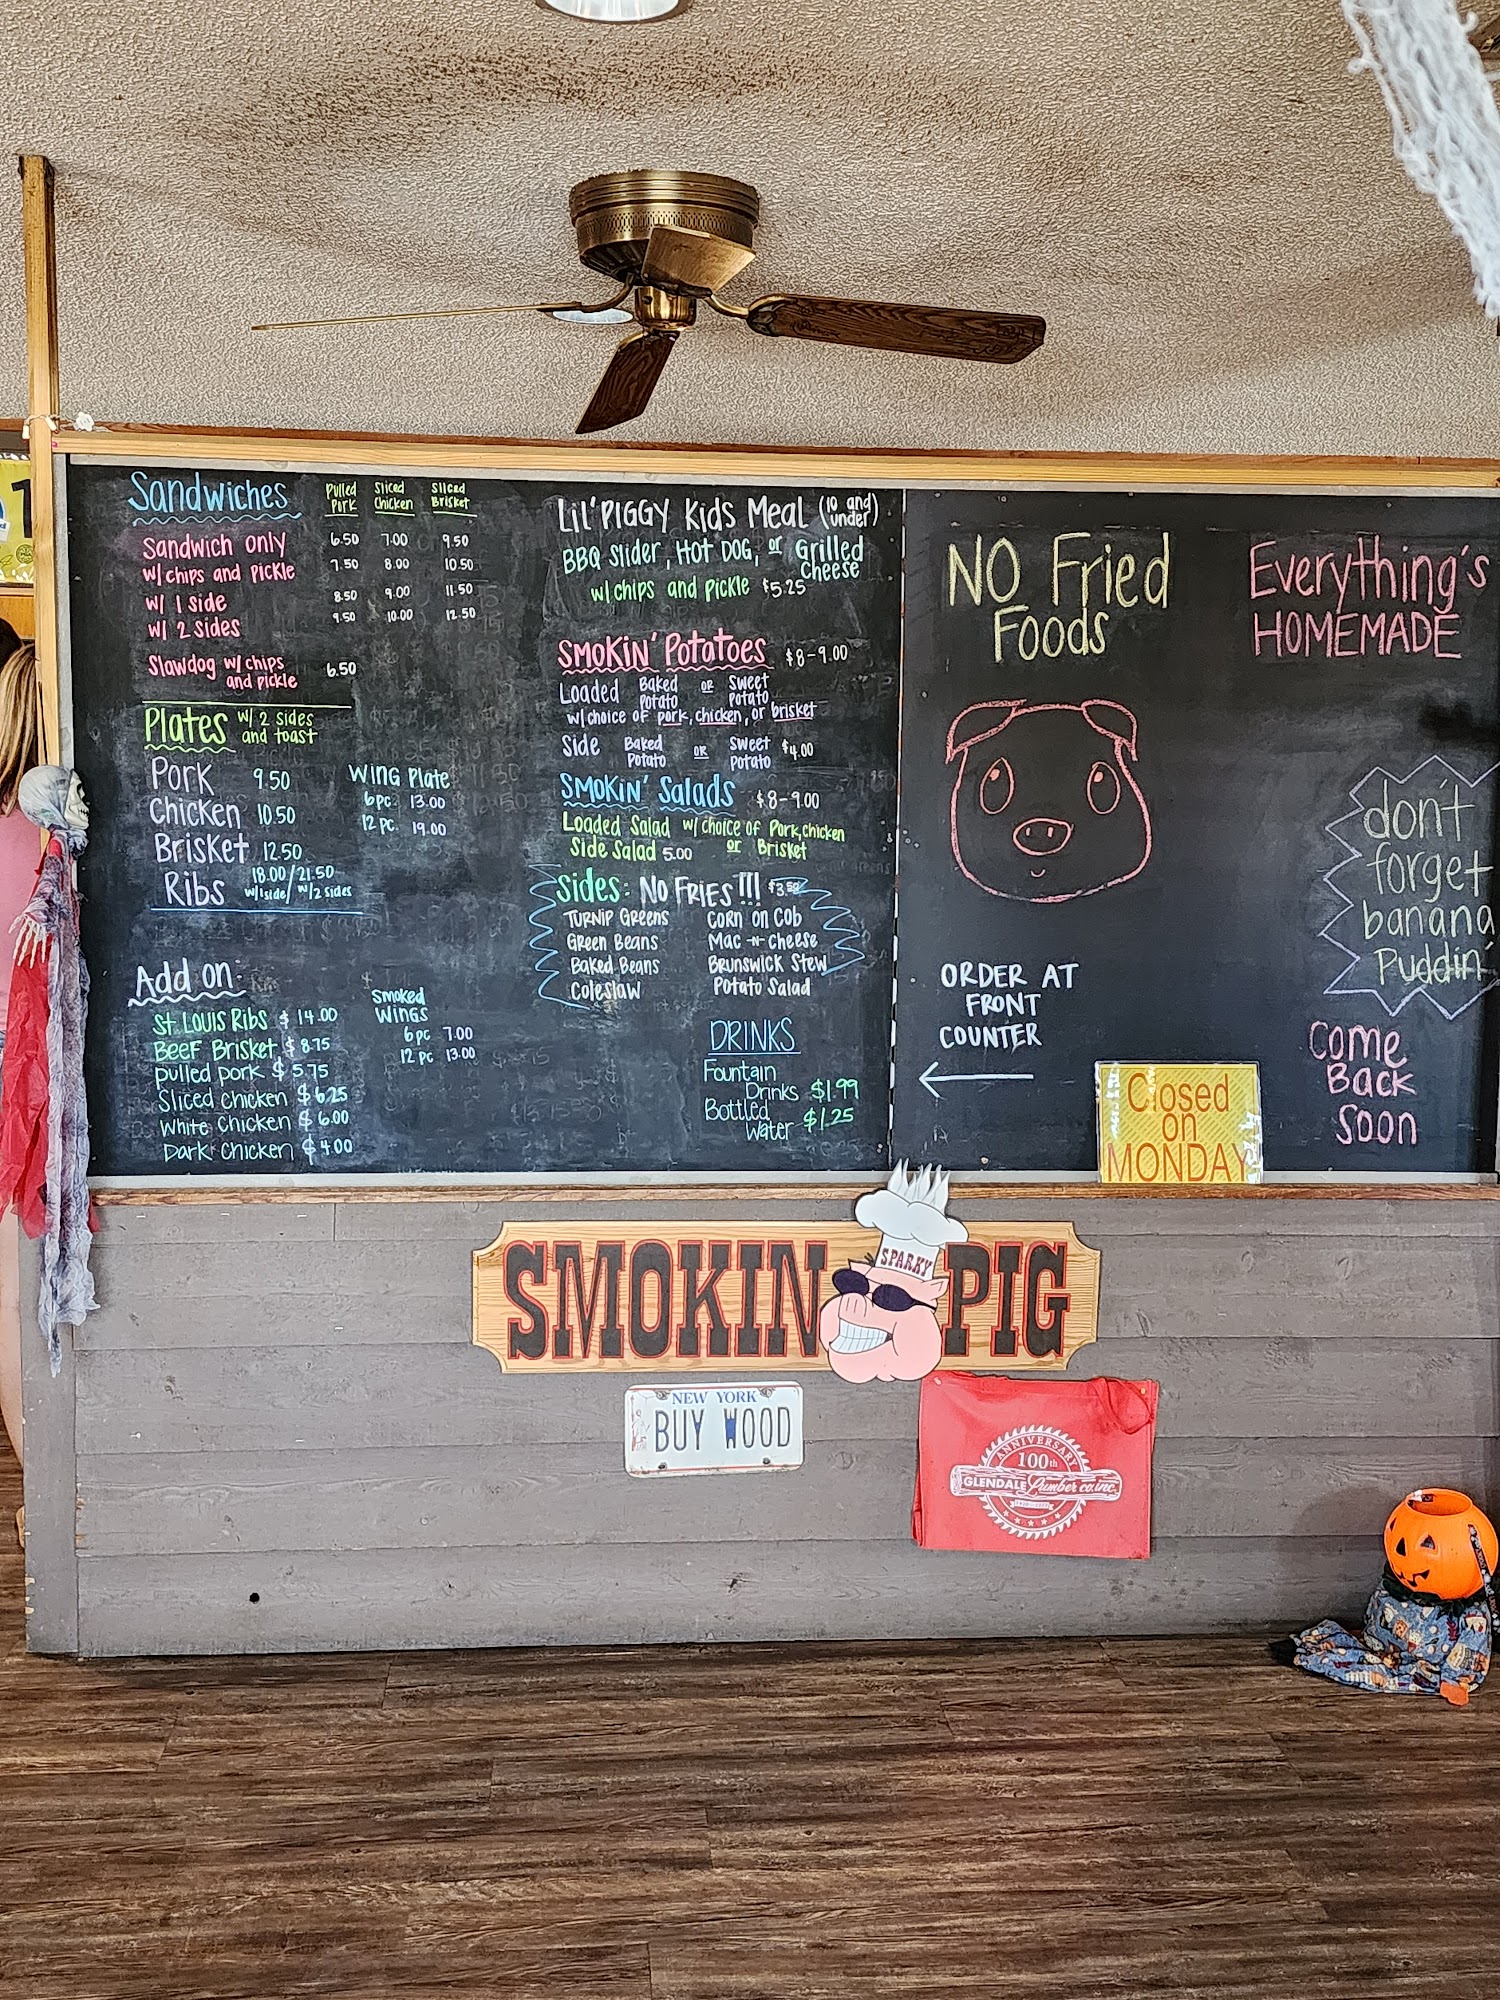 Sandwiches Pulled Pork Sliced Chicken Sliced Brisket
Sandwich only 6.50 7.00 9.50
w/ chips and Pickle 7.50 8.00 10.50
w/ 1 side 8.50 9.00 11.50
w/ 2 sides 9.50 10.00 12.50
Slawdog w/ chips
and pickle 6.50
Plates w/ 2 sides
and toast
Pork 9.50
Chicken 10.50
Brisket 12.50
Ribs 18.00/21.50
w/1side/ w/2 sides
Wing Plate
6pc. 13.00
12 pc. 19.00
Add on:
St. Louis Ribs $ 14.00
Beef Brisket $ 8.75
pulled pork $ 5.75
Sliced chicken $ 6.25
White Chicken $ 6.00
Dark Chicken $ 4.00
Smoked
Wings
6pc 7.00
12 pc 13.00
Lil' Piggy Kids Meal (10 and under)
BBQ Slider, Hot Dog, or Grilled Cheese
w/ chips and pickle $5.25
Smokin' Potatoes $8-9.00
Loaded Baked Potato or Sweet Potato
w/ choice of pork, chicken, or brisket
Side Baked Potato or Sweet Potato $4.00
Smokin' Salads $8-9.00
Loaded Salad w/ choice of Pork, chicken
or Brisket
Side Salad 5.00
Sides: NO FRIES!!! $3.50
Turnip Greens
Green Beans
Baked Beans
Coleslaw
Corn on Cob
Mac-n-cheese
Brunswick Stew
Potato Salad
DRINKS
Fountain
Drinks $1.99
Bottled
Water $1.25
NO Fried
Foods
Everything's
HOMEMADE
don't
forget
banana
Puddin'
ORDER AT
FRONT
COUNTER
Come
Back
Soon
Closed
on
MONDAY
SMOKIN PIG
SPARKY
NEW YORK
BUY WOOD
ANNIVERSARY
100th
GLENDALE Lumber co. inc.